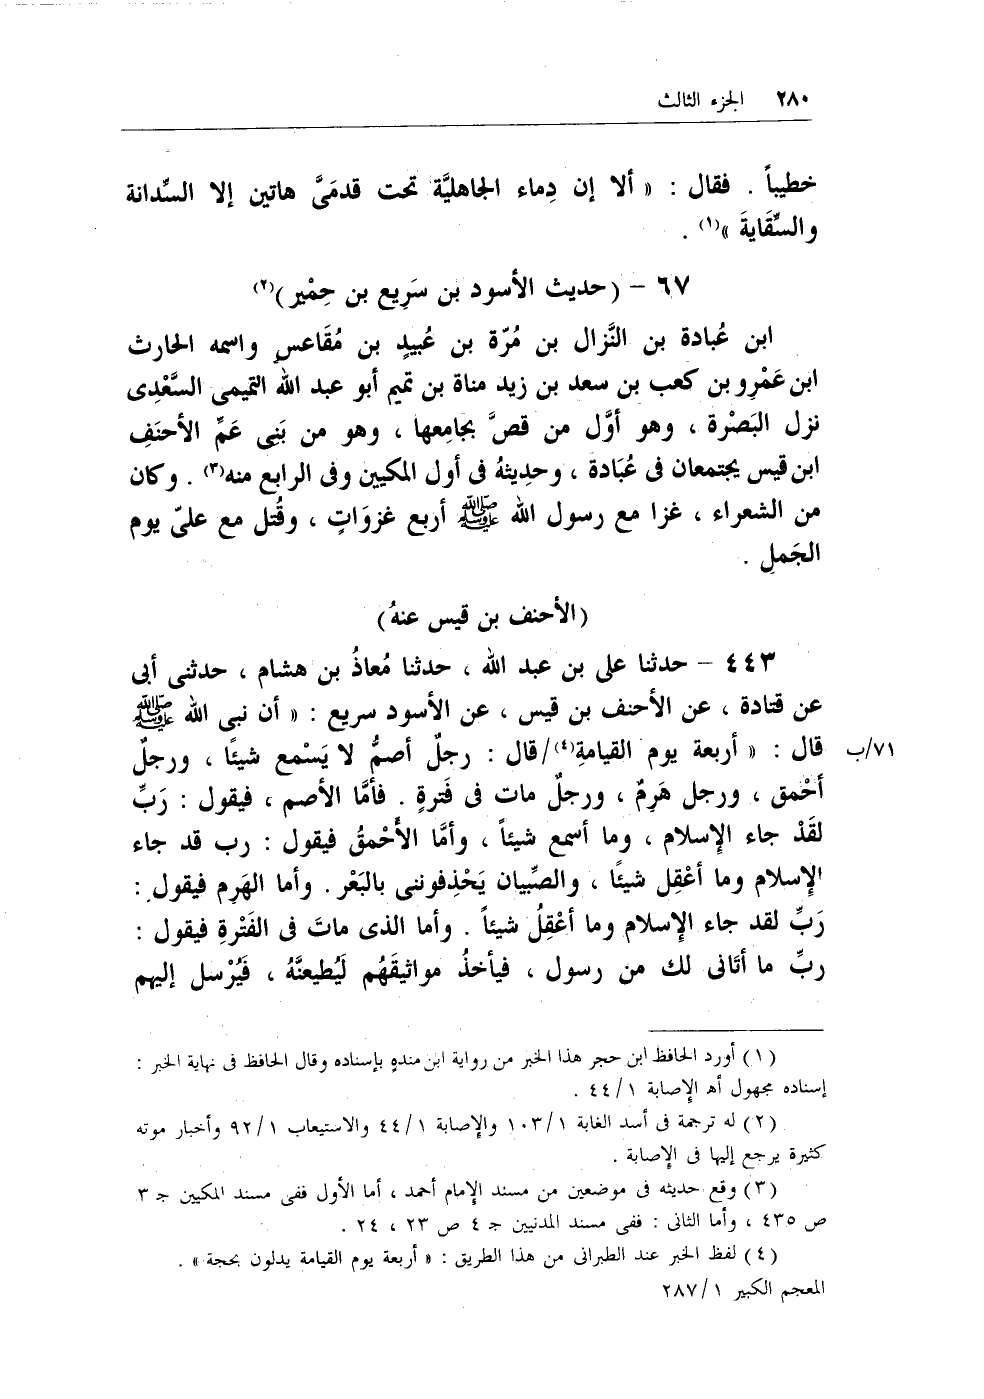 ٢٨٠ الجزء الثالث
خطيباً . فقال : « ألا إن دِماء الجاهليَّة تحت قدمَىَّ هاتين إلا السِّدانة
والسِّقَايةَ »(١) .
٦٧ – (حديث الأسود بن سَرِيع بن حِمْير)(٢)
ابن عُبادة بن النَّزال بن مُرّة بن عُبيدٍ بن مُقَاعسٍ واسمه الحارث
ابن عَمْرِو بن كعب بن سعد بن زيد مناة بن تميم أبو عبد الله التميمى السَّعْدِى
نزل البَصْرة ، وهو أوَّل من قصَّ بجامِعها ، وهو من بَنِى عَمِّ الأحنَفِ
ابن قيس يجتمعان فى عُبَادة ، وحدِيثهُ فى أول المكيين وفى الرابع منه(٣) . وكان
من الشعراء ، غزا مع رسول الله ﷺ أربع غزوَاتٍ ، وقُتل مع علىّ يوم
الجَملِ .
(الأحنف بن قيس عنهُ)
٤٤٣ – حدثنا على بن عبد الله ، حدثنا مُعاذُ بن هشام ، حدثنى أبى
عن قتادة ، عن الأحنف بن قيس ، عن الأسود سريع : « أن نبى الله ﷺ
قال : « أربعة يوم القيامةِ(٤)/قال : رجلٌ أصمُّ لا يَسْمع شيئًا ، ورجلٌ ٧١/ب
أحْمق ، ورجل هَرِمٌ ، ورجلٌ مات فى فَترةٍ . فأمَّا الأصم ، فيقول : رَبِّ
لقَدْ جاء الإِسلام ، وما أسمع شيئاً ، وأمَّا الأَحْمقُ فيقول : رب قد جاء
الإِسلام وما أعْقِل شيئًا ، والصِّبيان يَحْذِفوننى بالبَعْر . وأما الهَرِم فيقول :
رَبِّ لقد جاء الإِسلام وما أعْقِلُ شيئاً . وأما الذى ماتَ فى الفَتْرةِ فيقول :
ربِّ ما أتَانى لك من رسول ، فيأخذُ مواثيقَهُم لَيُطيعنَّهُ ، فَيُرْسل إليهم
(١) أورد الحافظ ابن حجر هذا الخبر من رواية ابن مندهٍ بإسناده وقال الحافظ فى نهاية الخبر :
إسناده مجهول أﻫ الإصابة ٤٤/١ .
(٢) له ترجمة فى أسد الغابة ١٠٣/١ والإِصابة ٤٤/١ والاستيعاب ٩٢/١ وأخبار موته
كثيرة يرجع إليها فى الإِصابة .
(٣) وقع حديثه فى موضعين من مسند الإِمام أحمد ، أما الأول ففى مسند المكيين جـ ٣
ص ٤٣٥ ، وأما الثانى : ففى مسند المدنيين جـ ٤ ص ٢٣ ، ٢٤ .
(٤) لفظ الخبر عند الطبرانى من هذا الطريق : « أربعة يوم القيامة يدلون بحجة » .
المعجم الكبير ٢٨٧/١